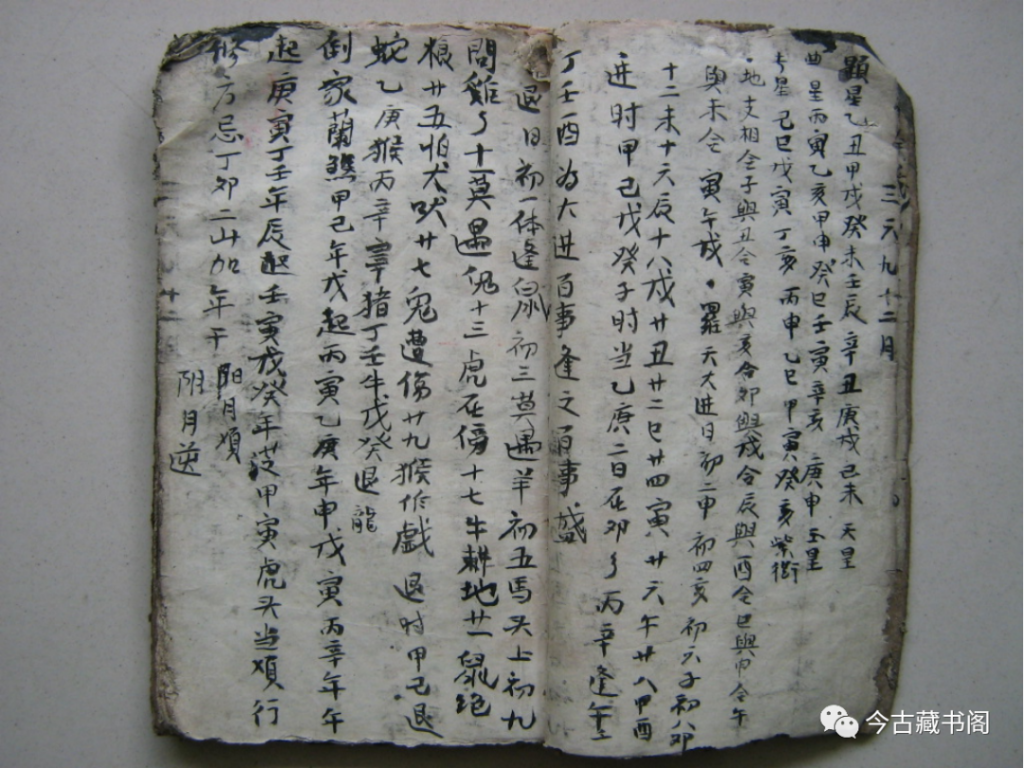 三六九十二月
顯星乙丑甲戌癸未壬辰 辛丑庚戌己未 天星
曲星丙寅乙亥甲申癸巳壬寅辛亥 庚申 玉星
己巳戊寅丁亥 丙申乙巳甲寅癸亥紫衔
地支相合子與丑合寅與亥合卯與戌合辰與酉合巳與申合午
與未合 寅午戌 羅天大进日初二申 初四亥 初六子初八卯
十二未十六辰十八戌廿丑廿二巳廿四寅廿六午廿八甲酉
进时甲己戊癸子时当乙庚二日在卯 丙辛逢午
丁壬酉为大进百事逢之百事盛
退日初一体逢鼠初三莫遇羊初五馬头上初九
問雞 十一莫遇兔十三虎在傍十七牛耕地廿一鼠绝
粮廿五怕犬吠廿七兔遭伤廿九猴作戲 退时甲己退
蛇乙庚猴丙辛 猪丁壬牛戊癸退龍
倒家蘭 甲己年戊起丙寅乙庚年申戊寅丙辛年午
起庚寅丁壬年辰 壬寅戊癸年 甲寅虎头当順行
修方忌丁卯二山加年干 陽月順
阴月逆
今古藏书阁